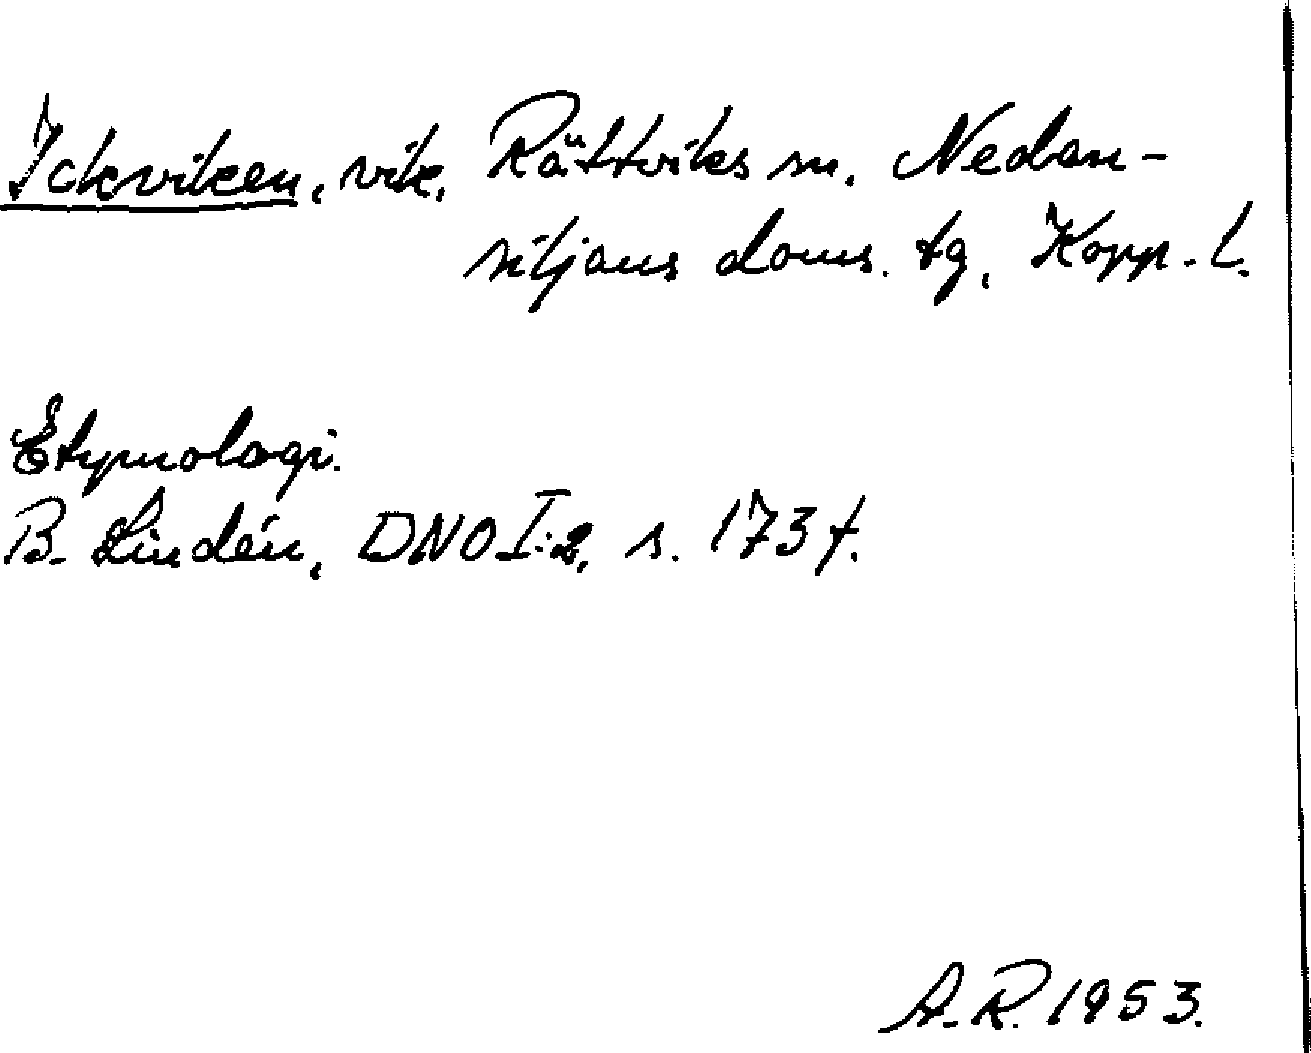 Ickviken, vik, Rättviks sn. Nedan-
siljans doms. tg, Kopp. l.
Etymologi.
B. Lindén, DNO I:2, s. 173 f.
A. R. 1953.